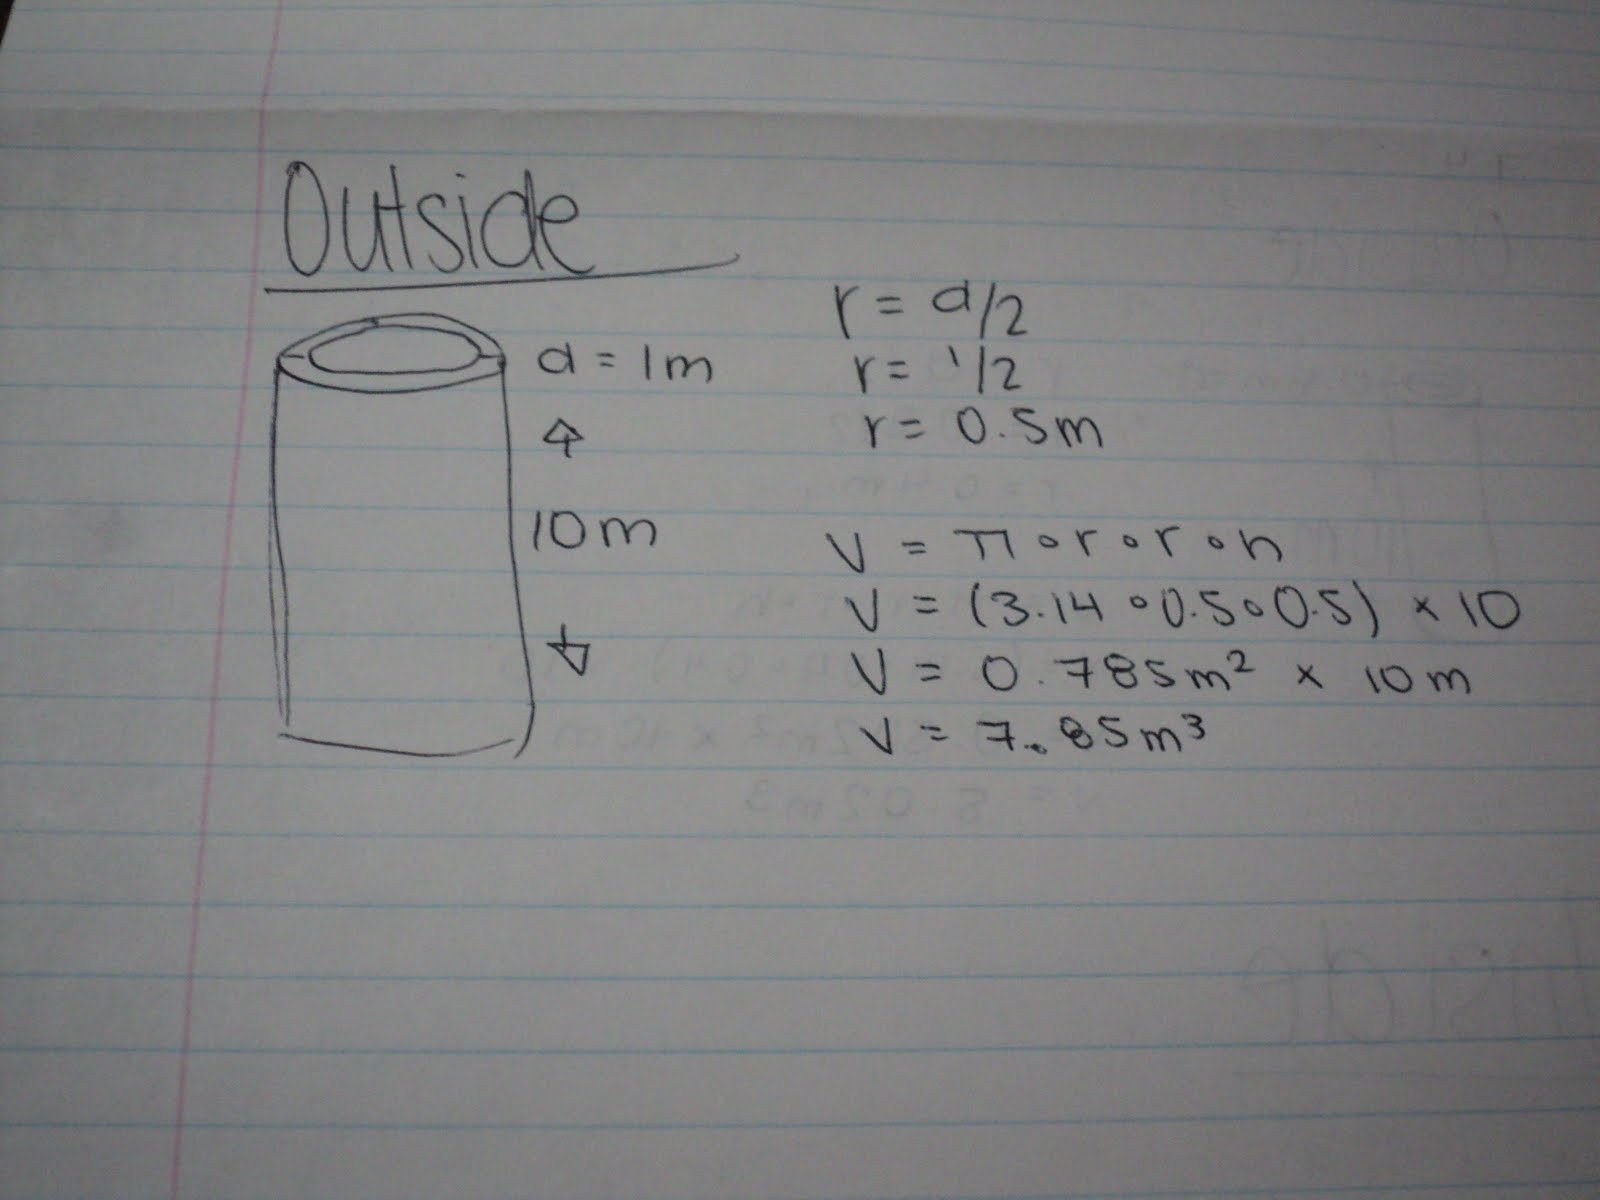 Outside
d = 1m
10m
r = d/2
r = 1/2
r = 0.5m
V = π • r • r • h
V = (3.14 • 0.5 • 0.5) × 10
V = 0.785m² × 10m
V = 7.85m³